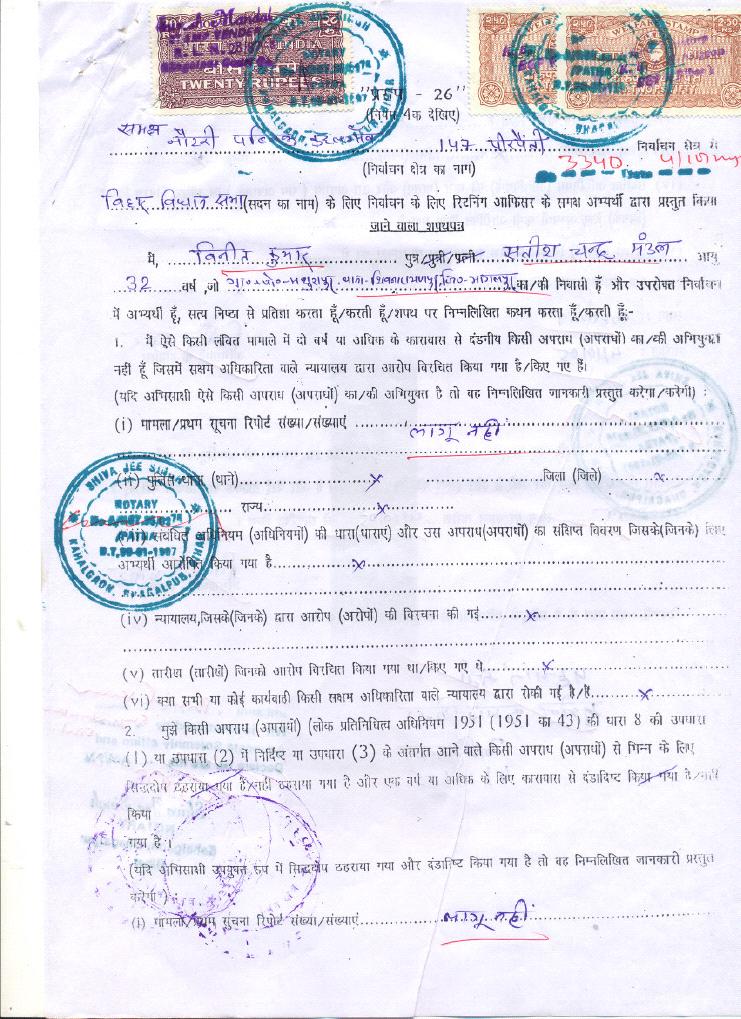 INDIA
बीस रुपये
TWENTY RUPEES
"प्ररूप - 26"
(नियम 4क देखिए)
समक्ष नोटरी पब्लिक कहलगाँव 147 पीरपैंती निर्वाचन क्षेत्र से
(निर्वाचन क्षेत्र का नाम)
3340
बिहार विधान सभा (सदन का नाम) के लिए निर्वाचन के लिए रिटर्निंग आफिसर के समक्ष अभ्यर्थी द्वारा प्रस्तुत किया
जाने वाला शपथपत्र
मैं, विनीत कुमार पुत्र/पुत्री/पत्नी सतीश चन्द्र मंडल आयु
32 वर्ष, जो का/की निवासी हूँ और उपरोक्त निर्वाचन
में अभ्यर्थी हूँ, सत्य निष्ठा से प्रतिज्ञा करता हूँ/करती हूँ/शपथ पर निम्नलिखित कथन करता हूँ/करती हूँ:-
1. मैं ऐसे किसी लंबित मामाले में दो वर्ष या अधिक के कारावास से दंडनीय किसी अपराध (अपराधों) का/की अभियुक्त
नहीं हूँ जिसमें सक्षम अधिकारिता वाले न्यायालय द्वारा आरोप विरचित किया गया है/किए गए हैं।
(यदि अभिसाक्षी ऐसे किसी अपराध (अपराधों) का/की अभियुक्त है तो वह निम्नलिखित जानकारी प्रस्तुत करेगा/करेगी) :
(i) मामला/प्रथम सूचना रिपोर्ट संख्या/संख्याएं लागू नहीं
(ii) पुलिस थाना (थाने) x जिला (जिले) x
राज्य x
संबंधित अधिनियम (अधिनियमों) की धारा(धाराएं) और उस अपराध(अपराधों) का संक्षिप्त विवरण जिसके(जिनके) लिए
अभ्यर्थी आरोपित किया गया है x
(iv) न्यायालय,जिसके(जिनके) द्वारा आरोप (अरोपों) की विरचना की गई x
(v) तारीख (तारीखें) जिनको आरोप विरचित किया गया था/किए गए थे x
(vi) क्या सभी या कोई कार्यवाही किसी सक्षम अधिकारिता वाले न्यायालय द्वारा रोकी गई है/हैं x
2. मुझे किसी अपराध (अपराधों) (लोक प्रतिनिधित्व अधिनियम 1951 (1951 का 43) की धारा 8 की उपधारा
(1) या उपधारा (2) में निर्दिष्ट या उपधारा (3) के अंतर्गत आने वाले किसी अपराध (अपराधों) से भिन्न के लिए
सिद्धदोष ठहराया गया है/नहीं ठहराया गया है और एक वर्ष या अधिक के लिए कारावास से दंडादिष्ट किया गया है/नहीं
किया
गया है।
(यदि अभिसाक्षी उपर्युक्त रूप में सिद्धदोष ठहराया गया और दंडादिष्ट किया गया है तो वह निम्नलिखित जानकारी प्रस्तुत
करेगा)
(i) मामला/प्रथम सूचना रिपोर्ट संख्या/संख्याएं लागू नहीं
SHIVA JEE SINGH
NOTARY
PATNA
D.T, 09-01-1997
KAHALGAON, BHAGALPUR, BIHAR